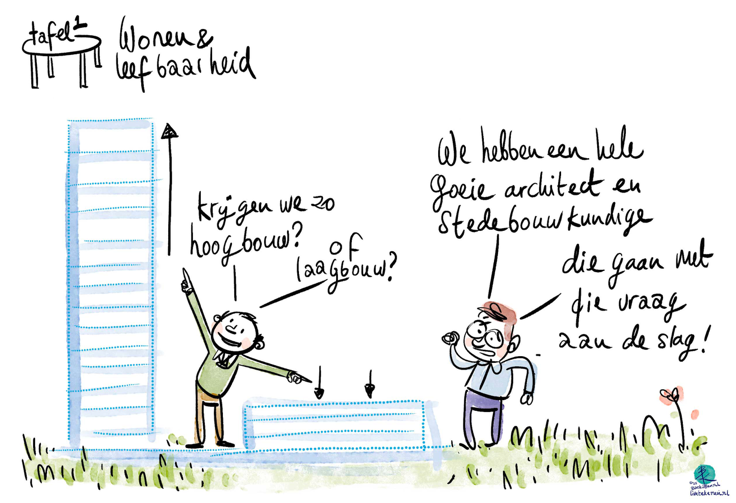 tafel 1
Wonen &
leefbaarheid
krijgen we zo
hoogbouw?
of
laagbouw?
We hebben een hele
goeie architect en
stedebouwkundige
die gaan met
die vraag
aan de slag!